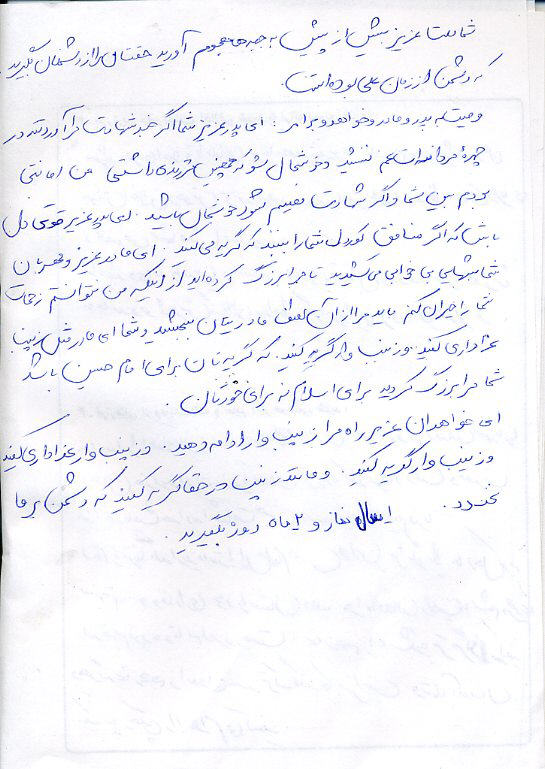 شما ملت عزیز بیش از پیش به جبهه‌ها هجوم آورید حقتان را از دشمنان بگیرید
که دشمن از زمان علی بوده است
وصیتم به پدر و مادر و خواهر و برادر: ای پدر عزیز شما اگر خبر شهادت مرا آوردند در
چهرهٔ مردانه‌ات غم ننشیند و خوشحال شو که همچنین فرزندی داشتی من امانتی
بودم بین شما و اگر شهادت نصیبم شود خوشحال باشید. ای پدر عزیز قوی دل
باش که اگر منافق کوردل شما را ببیند که گریه می‌کنید. ای مادر عزیز و مهربان
شما شبهایی بی خوابی می‌کشیدید تا مرا بزرگ کرده‌اید از اینکه من نتوانستم زحمات
شما را جبران کنم باید مرا از آن لطف مادریتان ببخشید و شما ای مادر مثل زینب
عزاداری کنید و زینب وار گریه کنید. که گریه‌تان برای امام حسین باشد
شما مرا بزرگ کردید برای اسلام نه برای خودتان.
ای خواهران عزیز راه مرا زینب وار ادامه دهید. و زینب وار عزاداری کنید
و زینب وار گریه کنید. و مانند زینب در خفا گریه کنید که دشمن بر ما
نخندد. ۱ سال نماز و ۲ ماه روزه بگیرید.